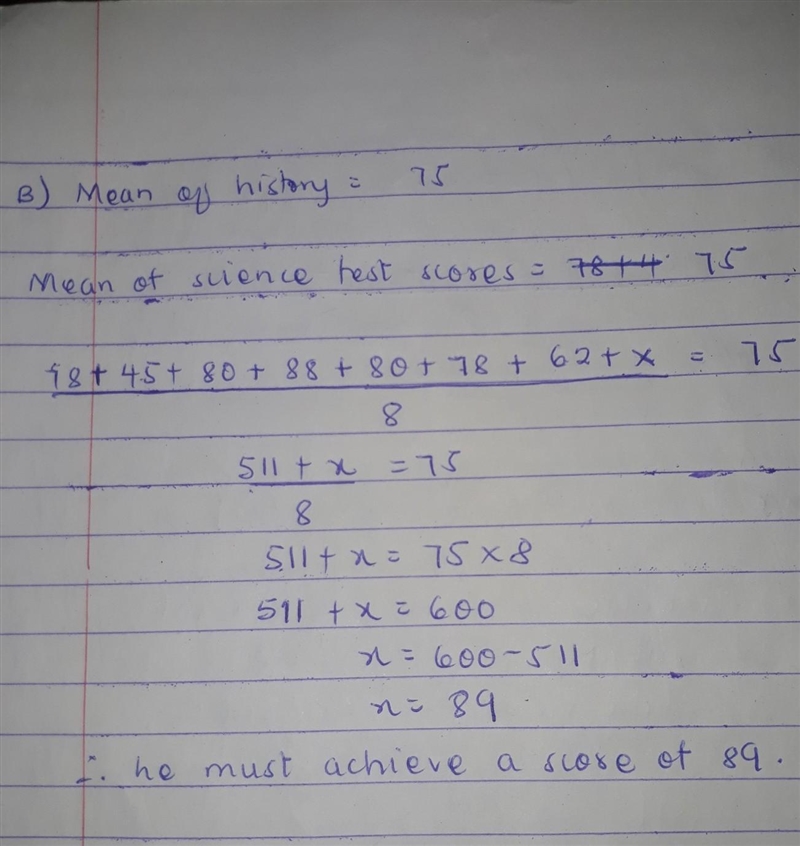 B) Mean of history = 75
Mean of science test scores = 78+4 75
78 + 45 + 80 + 88 + 80 + 78 + 62 + x = 75
8
511 + x = 75
8
511 + x = 75 × 8
511 + x = 600
x = 600 - 511
x = 89
∴ he must achieve a score of 89.